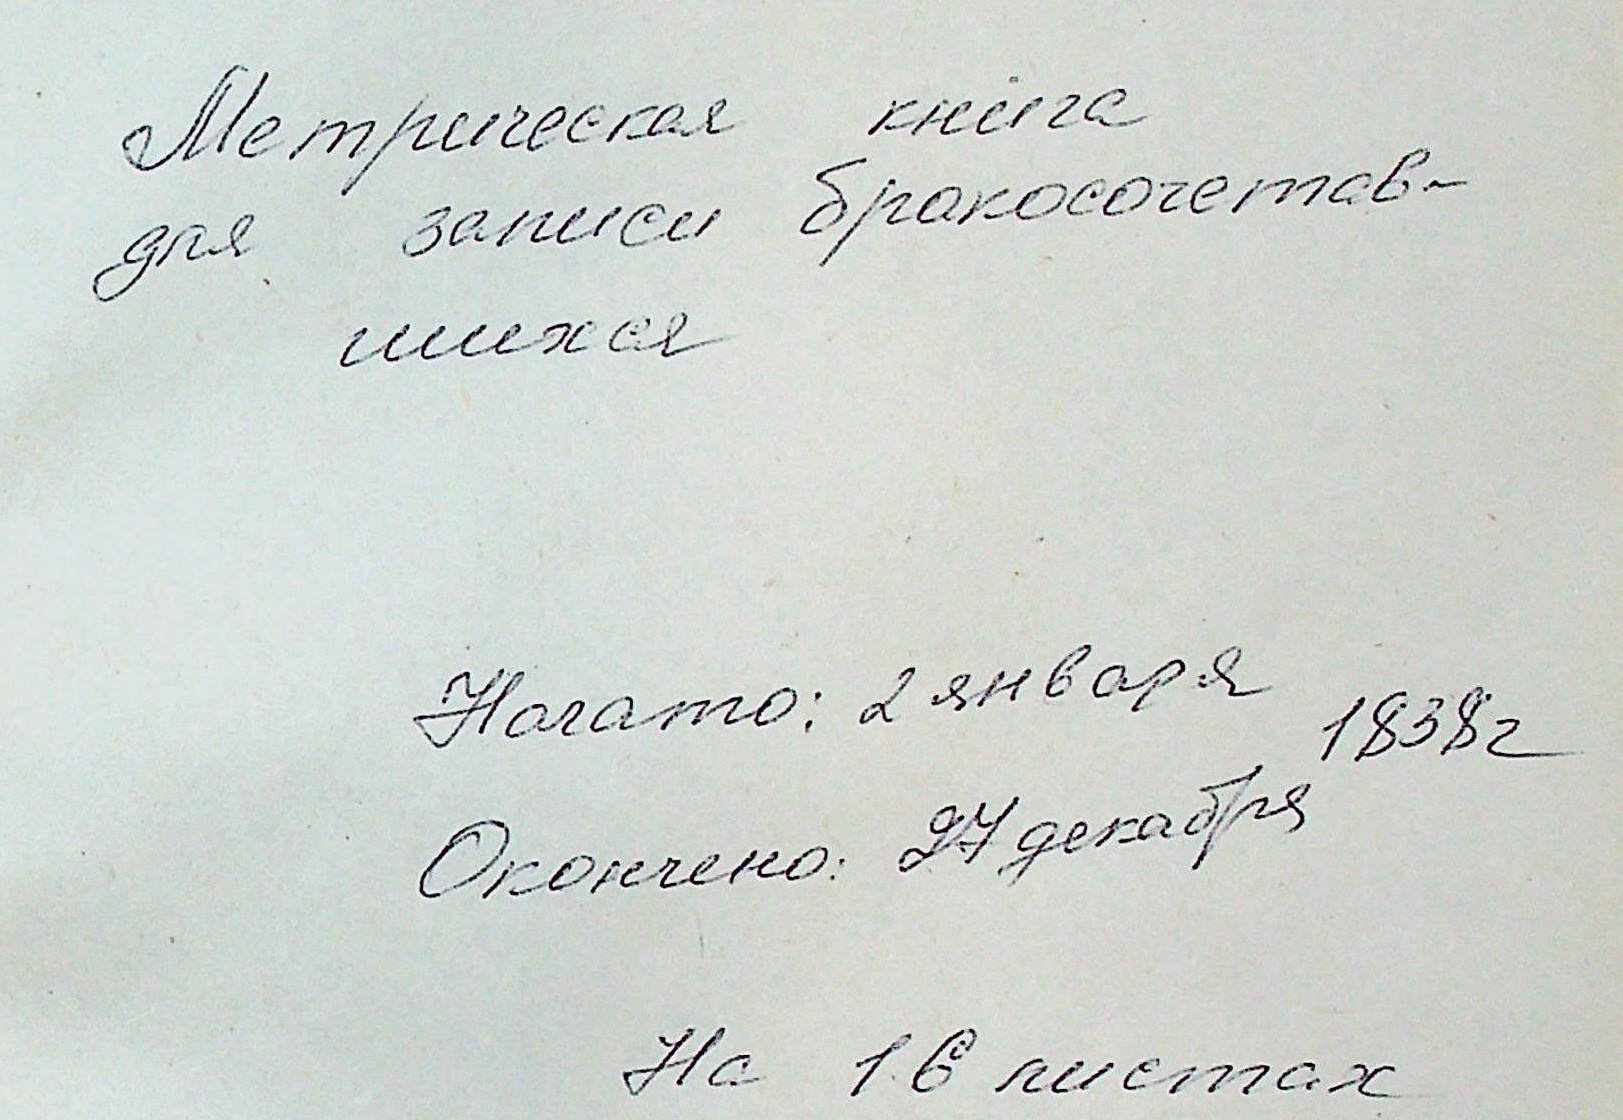 Метрическая книга
для записи бракосочетав-
шихся
Начато: 2 января
1838г
Окончено: 27 декабря
На 16 листах